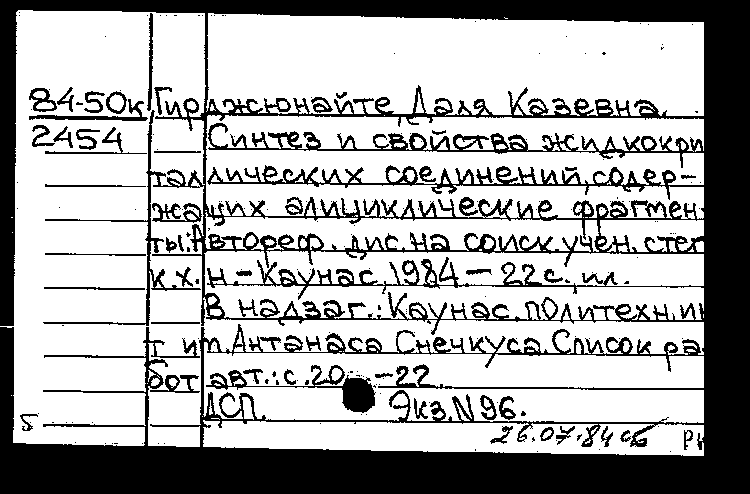 84-50к Гирджюнайте, Даля Казевна.
2454 Синтез и свойства жидкокри
таллических соединений, содер-
жащих алициклические фрагмен-
ты: Автореф. дис. на соиск. учен. степ
к.х.н. - Каунас, 1984 - 22 с., ил.
В надзаг.: Каунас. политехн. ин
т им. Антанаса Снечкуса. Список ра
бот авт.: с. 20 -22.
ДСП. Экз. N 96.
5 26.07.84